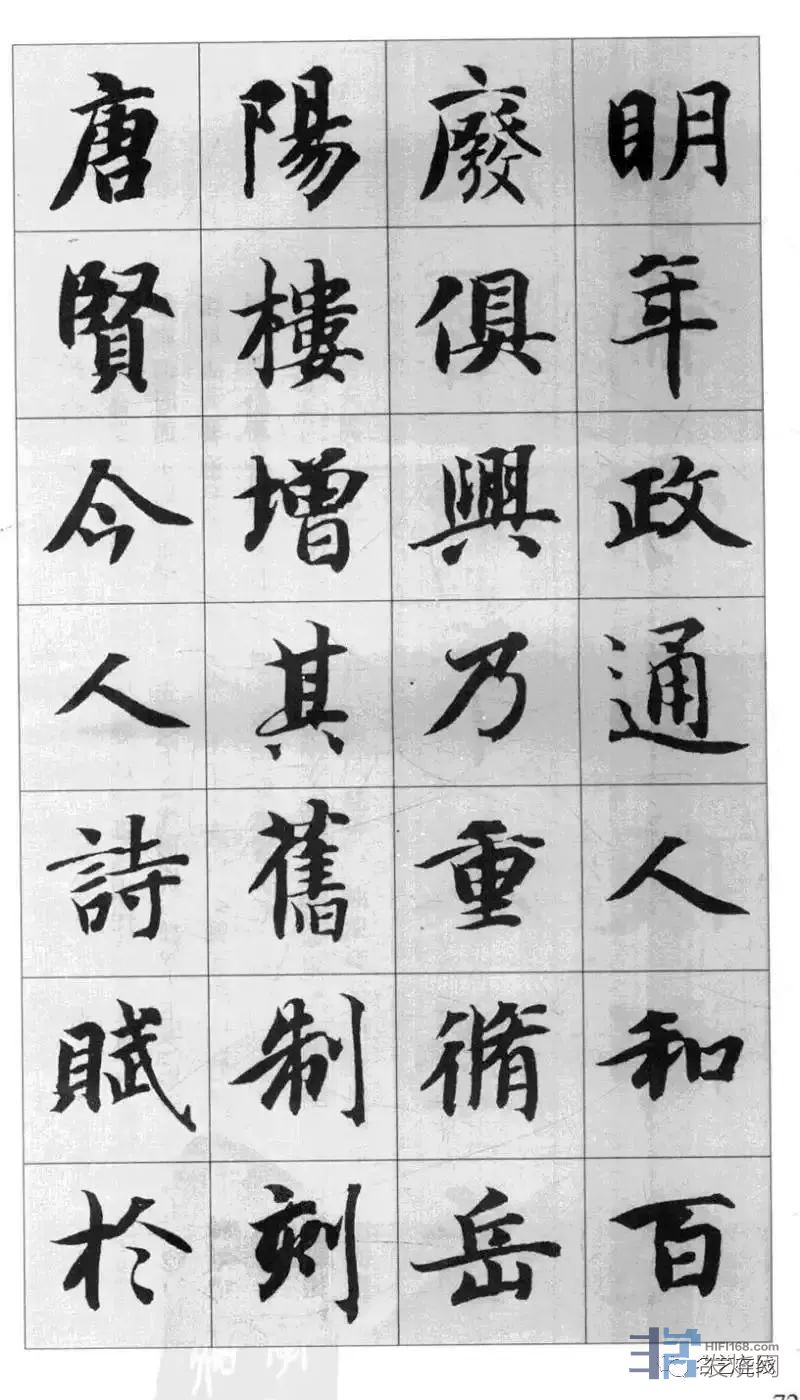 明年政通人和百
廢俱興乃重脩岳
陽樓增其舊制刻
唐賢今人詩賦於
HIFI168.com